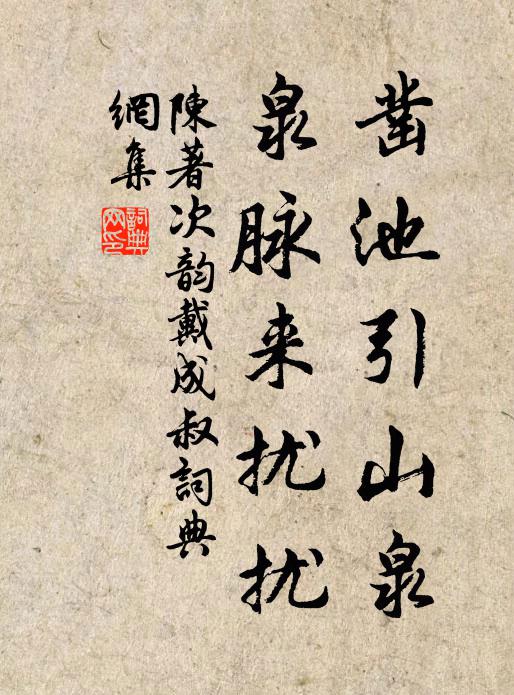 凿池引山泉
泉脉来扰扰
陳著次韵戴成叔詞典
網集
詞典
网印